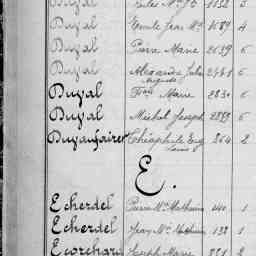 Duval Jules Mie Fs 1132 3
Duval Emile Jean Mie 1689 4
Duval Pierre Marie 2039 6
Duval Alexandre Jules Auguste 2461 5
Duval Frois Marie 2830 6
Duval Michel Joseph 2889 6
Duvaufairier Théophile Eug Louis 264 2
E.
Echerdel Pierre Mie Mathurin 240 1
Echerdel Jean Mie Mathurin 138 1
Ecorchard Joseph Marie 851 2